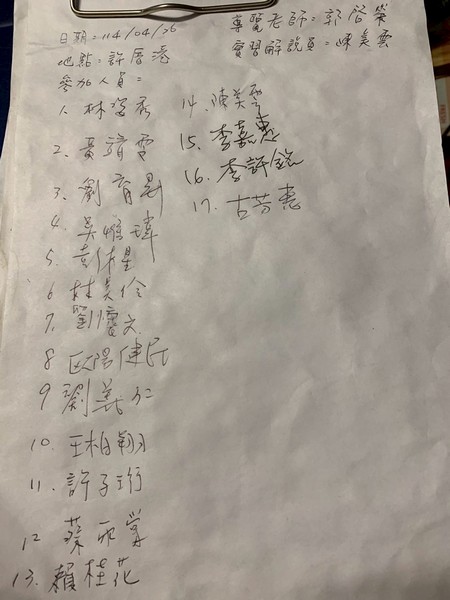 日期=114/04/26
地點=許厝港
參加人員=
導覽老師=郭啓榮
實習解說員=陳美雲
1. 林
2. 黃靖雯
3. 劉育
4. 吳惟瑋
5. 星
6. 杜美伶
7. 劉慶文
8 歐陽健民
9 劉義仁
10. 王柏翔
11. 許子珩
12 蔡
13. 賴桂花
14. 陳美雲
15. 李嘉惠
16. 李許銘
17. 古芳惠